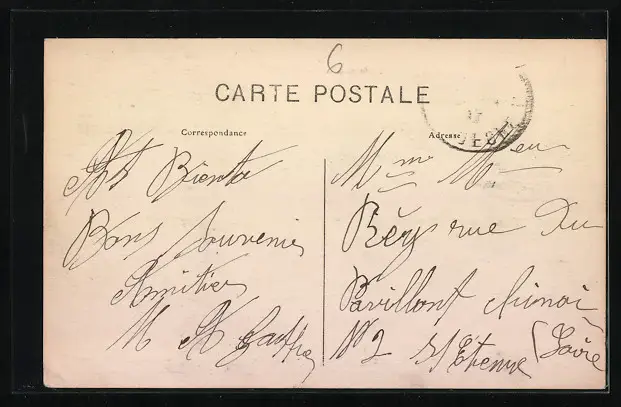 6
CARTE POSTALE
Correspondance
Adresse
Bientot
Bons Souvenirs
Amitiés
M
Mme Mr
Réty rue Du
Pavillont chinoi
No 2 St Etienne (Loire)